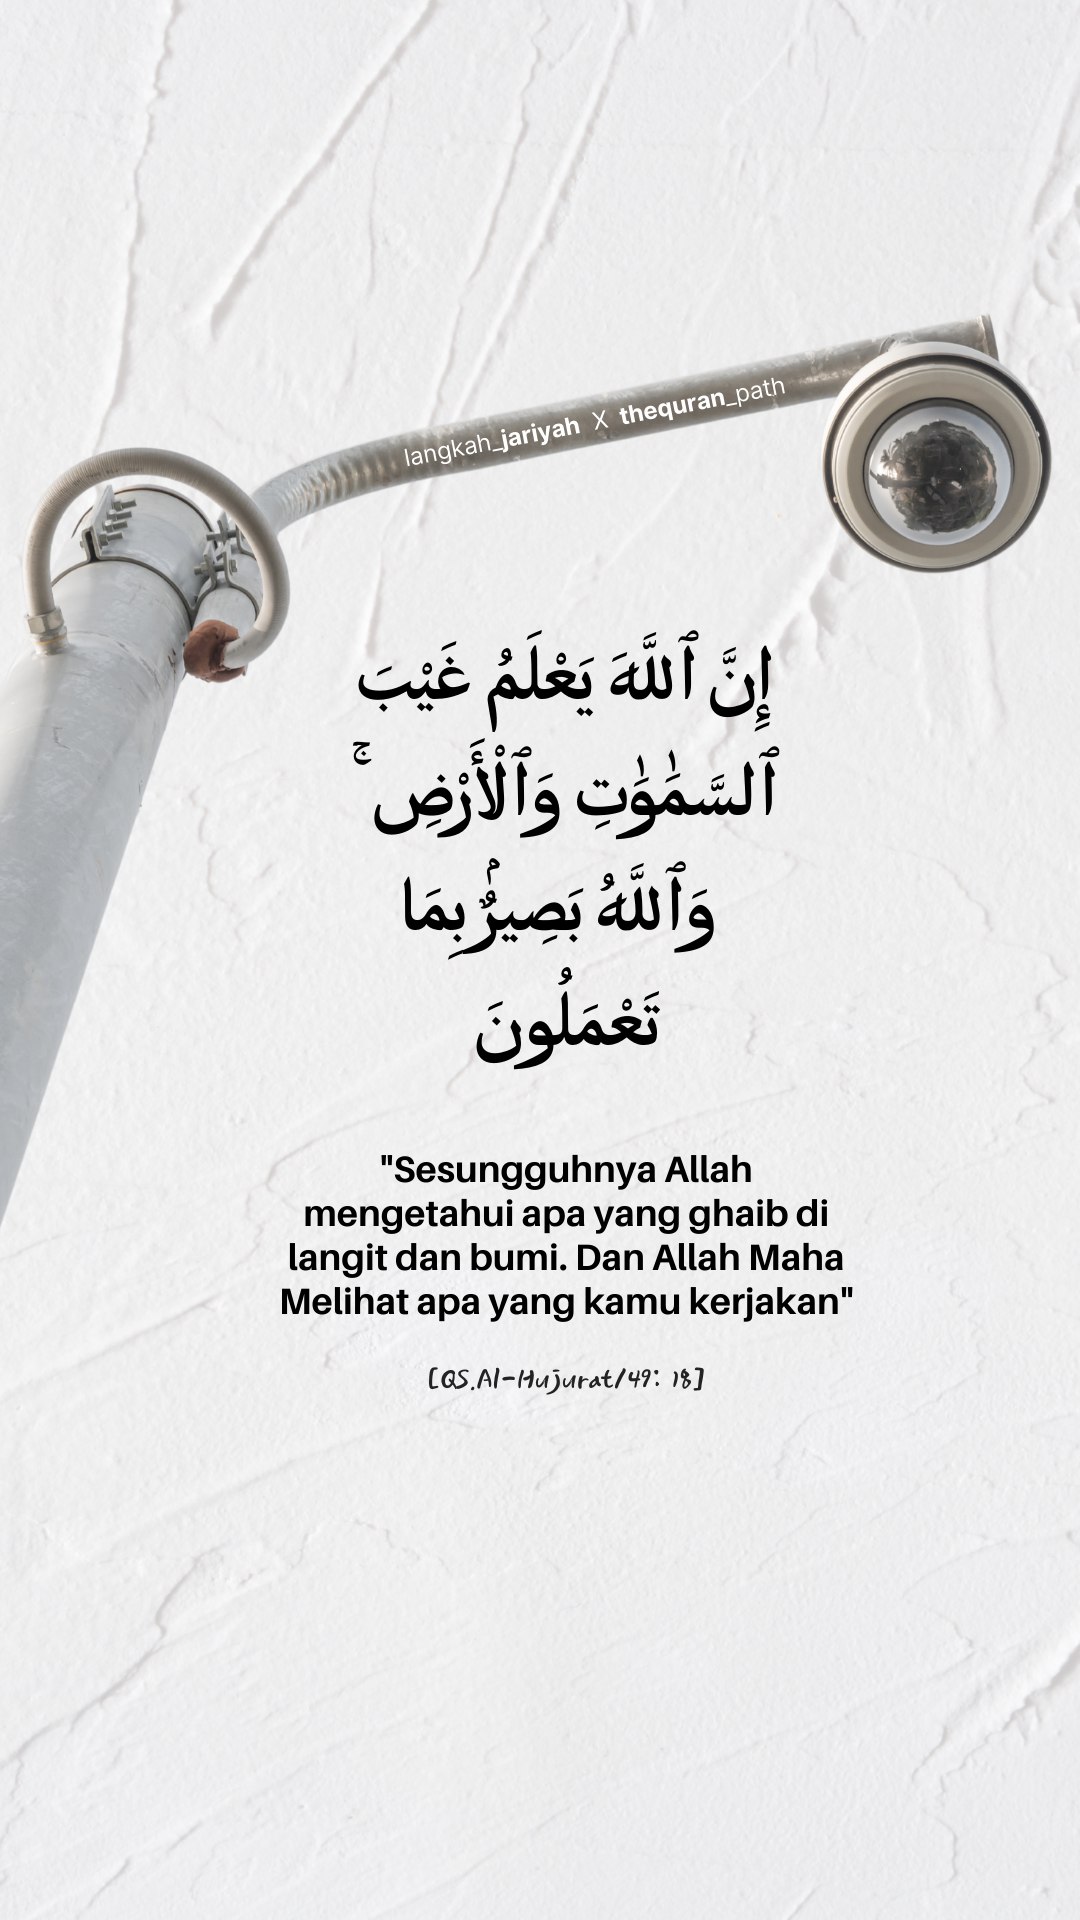 langkah_jariyah X thequran_path
إِنَّ ٱللَّهَ يَعْلَمُ غَيْبَ
ٱلسَّمَٰوَٰتِ وَٱلْأَرْضِ ۚ
وَٱللَّهُ بَصِيرٌۢ بِمَا
تَعْمَلُونَ
"Sesungguhnya Allah
mengetahui apa yang ghaib di
langit dan bumi. Dan Allah Maha
Melihat apa yang kamu kerjakan"
[QS.Al-Hujurat/49: 18]